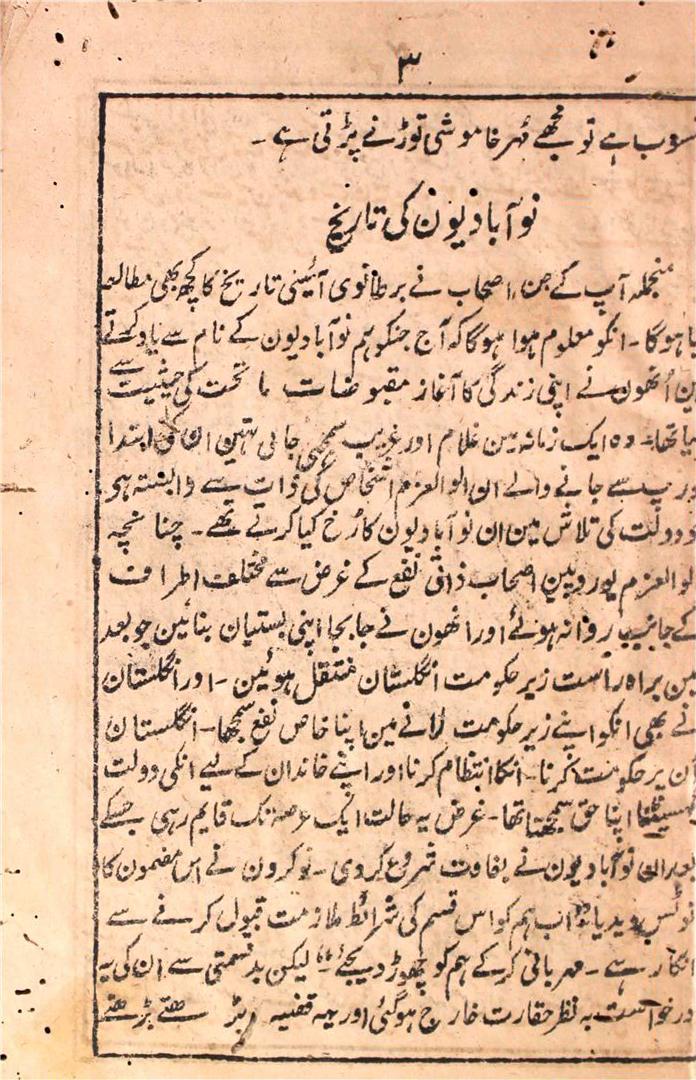 ۳
سوب ہے تو مجھے مُہر خاموشی توڑنے پڑتی ہے ۔
نوآبادیون کی تاریخ
منجملہ آپ کے جن اصحاب نے برطانوی آئینی تاریخ کا کچھ بھی مطالعہ
یا ہوگا ۔ انکو معلوم ہوا ہوگا کہ آج جنکو ہم نوآبادیون کے نام سے یاد کرتے
ین اُنھون نے اپنی زندگی کا آغاز مقبوضات ماتحت کی حیثیت سے
یا تھا ۔ وہ ایک زمانہ مین غلام اور غریب سمجھی جاتی تہین ان کی ابتدا
ورپ سے جانے والے ان الوالعزم اشخاص کی ذات سے وابستہ ہو
و دولت کی تلاش مین ان نوآبادیون کا رُخ کیا کرتے تھے ۔ چنانچہ
لوالعزم یوروپین اصحاب ذاتی نفع کے غرض سے مختلف اطراف
کے جانب روانہ ہوئے اور انھون نے جابجا اپنی بستیان بنائین جو بعد
مین براہ راست زیر حکومت انگلستان منتقل ہوئین ۔ اور انگلستان
نے بھی انکو اپنے زیر حکومت لانے مین اپنا خاص نفع سمجھا ۔ انگلستان
ان پر حکومت کرنا ۔ انکا انتظام کرنا اور اپنے خاندان کے لیے انکی دولت
گھسیٹنا اپنا حق سمجھتا تھا ۔ غرض یہ حالت ایک عرصہ تک قایم رہی جسکے
بعد ان نوآبادیون نے بغاوت شروع کردی ۔ نوکرون نے اس مضمون کا
نوٹس دیدیا "اب ہم کو اس قسم کی شرائط ملازمت قبول کرنے سے
انکار ہے ۔ مہربانی کرکے ہم کو چھوڑ دیجئے" لیکن بدقسمتی سے ان کی یہ
درخواست بہ نظر حقارت خارج ہوگئی اور یہہ قضیہ بڑھتے بڑھتے